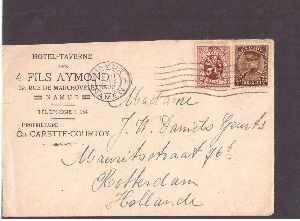 HOTEL-TAVERNE
DES
4 FILS AYMOND
39, RUE DE MARCHOVELETTE
NAMUR
TÉLÉPHONE
PROPRIÉTAIRE
CH. CARETTE-COURTOY
NAMUR
NAMEN
Madame
J. W. Daniëls Geurts
Mauritsstraat 96b
Rotterdam
Hollande